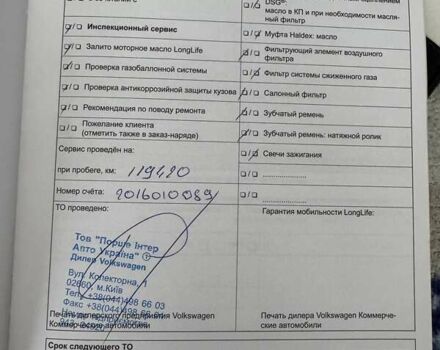 DSG®:
масло в КП и при необходимости масля-
ный фильтр
Инспекционный сервис
Муфта Haldex: масло
Залито моторное масло LongLife
Фильтрующий элемент воздушного
фильтра
Проверка газобаллонной системы
Фильтр системы сжиженного газа
Проверка антикоррозийной защиты кузова
Салонный фильтр
Рекомендация по поводу ремонта
Зубчатый ремень
Пожелание клиента
(отметить также в заказ-наряде)
Зубчатый ремень: натяжной ролик
Сервис проведён на:
Свечи зажигания
при пробеге, км: 119420
Номер счёта: 2016010089
ТО проведено:
Гарантия мобильности LongLife:
Тов "Порше Інтер
Авто Україна" ①
Дилер Volkswagen
Вул. Колекторна, 1
02660, м.Київ
Тел. +38(044)498 66 03
Факс +38(044)498 66 04
Печать дилерского предприятия Volkswagen
Коммерческие автомобили
Печать дилера Volkswagen Коммерче-
ские автомобили
Срок следующего ТО